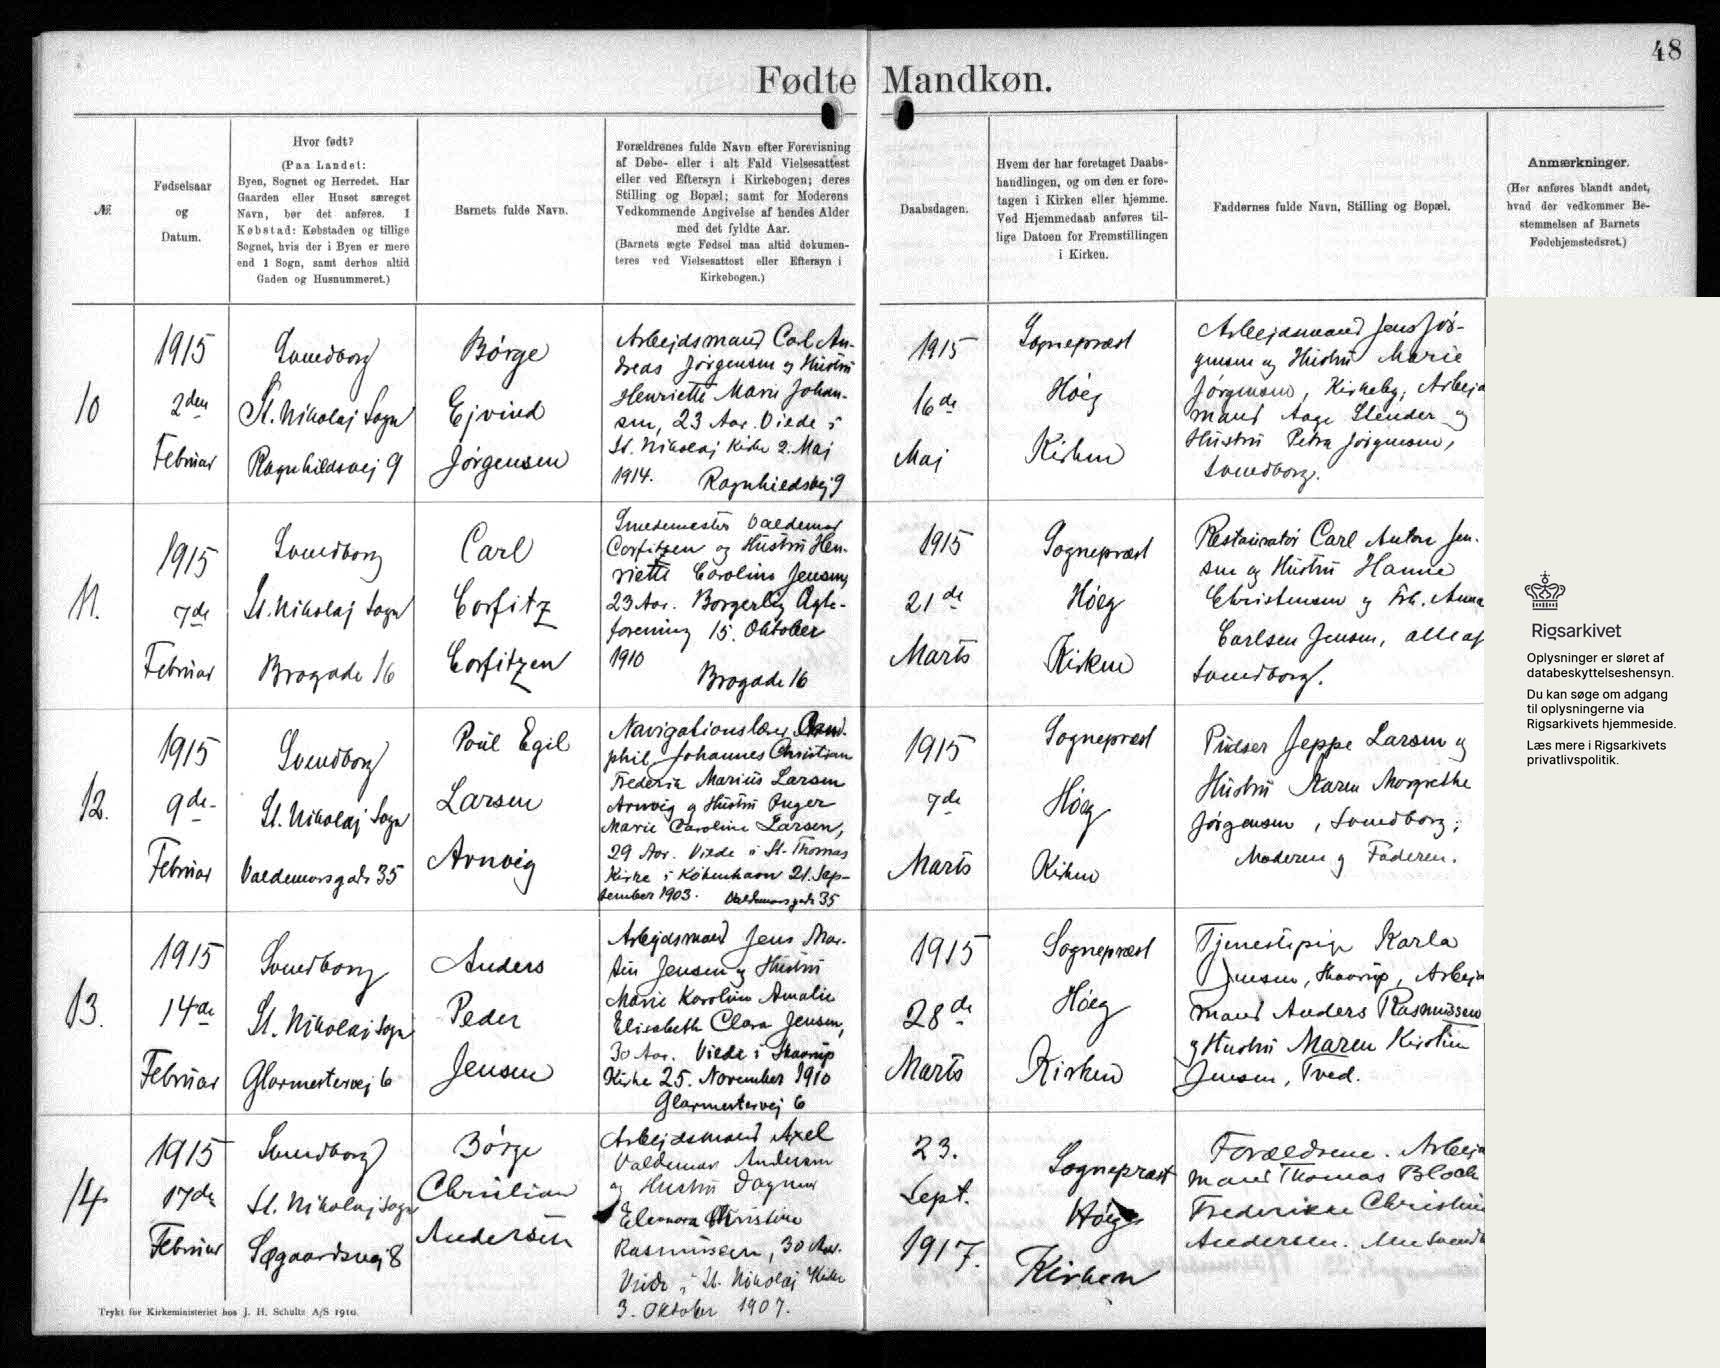 48
Fødte Mandkøn.
№
Fødselsaar
og
Datum.
Hvor født?
(Paa Landet:
Byen, Sognet og Herredet. Har
Gaarden eller Huset særeget
Navn, bør det anføres. I
Købstad: Købstaden og tillige
Sognet, hvis der i Byen er mere
end 1 Sogn, samt derhos altid
Gaden og Husnummeret.)
Barnets fulde Navn.
Forældrenes fulde Navn efter Forevisning
af Døbe- eller i alt Fald Vielsesattest
eller ved Eftersyn i Kirkebogen; deres
Stilling og Bopæl; samt for Moderens
Vedkommende Angivelse af hendes Alder
med det fyldte Aar.
(Barnets ægte Fødsel maa altid dokumen-
teres ved Vielsesattest eller Eftersyn i
Kirkebogen.)
Daabsdagen.
Hvem der har foretaget Daabs-
handlingen, og om den er fore-
tagen i Kirken eller hjemme.
Ved Hjemmedaab anføres til-
lige Datoen for Fremstillingen
i Kirken.
Faddernes fulde Navn, Stilling og Bopæl.
Anmærkninger.
(Her anføres blandt andet,
hvad der vedkommer Be-
stemmelsen af Barnets
Fødehjemstedsret.)
10
1915
2den
Februar
Svendborg
St. Nikolaj Sogn
Ragnhildsvej 9
Børge
Ejvind
Jørgensen
Arbejdsmand Carl An-
dreas Jørgensen og Hustru
Henriette Marie Johan-
sen, 23 Aar. Viede i
St. Nikolaj Kirke 2. Maj
1914. Ragnhildsvej 9
1915
16de
Maj
Sognepræst
Høeg
Kirken
Arbejdsmand Jens Jør-
gensen og Hustru Marie
Jørgensen, Kirkeby, Arbejds
mand Aage Stender og
Hustru Petra Jørgensen,
Svendborg.
11.
1915
7de
Februar
Svendborg
St. Nikolaj Sogn
Brogade 16
Carl
Corfitz
Corfitzen
Smedemester Valdemar
Corfitzen og Hustru Hen-
riette Caroline Jensen,
23 Aar. Borgerlig Ægte-
forening 15. Oktober
1910
Brogade 16
1915
21de
Marts
Sognepræst
Høeg
Kirken
Restauratør Carl Anton Jen-
sen og Hustru Hanne
Christensen og Frk. Anna
Carlsen Jensen, alle af
Svendborg.
12.
1915
9de
Februar
Svendborg
St. Nikolaj Sogn
Valdemarsgade 35
Poul Egil
Larsen
Arnvig
Navigationslærer, Cand.
phil. Johannes Christian
Frederik Marius Larsen
Arnvig og Hustru Inger
Marie Caroline Larsen,
29 Aar. Viede i St. Thomas
Kirke i København 21. Sep-
tember 1903. Valdemarsgade 35
1915
7de
Marts
Sognepræst
Høeg
Kirken
Pudser Jeppe Larsen og
Hustru Karen Margrethe
Jørgensen, Svendborg;
Moderen og Faderen.
13.
1915
14de
Februar
Svendborg
St. Nikolaj Sogn
Glarmestervej 6
Anders
Peder
Jensen
Arbejdsmand Jens Mar-
tin Jensen og Hustru
Marie Karoline Amalie
Elisabeth Clara Jensen,
30 Aar. Viede i Skaarup
Kirke 25. November 1910
Glarmestervej 6
1915
28de
Marts
Sognepræst
Høeg
Kirken
Tjenestepige Karla
Jensen, Skaarup, Arbejds
mand Anders Rasmussen
og Hustru Maren Kirstine
Jensen, Tved.
14
1915
17de
Februar
Svendborg
St. Nikolaj Sogn
Søgaardsvej 8
Børge
Christian
Andersen
Arbejdsmand Axel
Valdemar Andersen
og Hustru Dagmar
Eleonora Christine
Rasmussen, 30 Aar.
Viede i St. Nikolaj Kirke
3. Oktober 1907.
23.
Sept.
1917.
Sognepræst
Høeg
Kirken
Forældrene. Arbejds
mand Thomas Bloch
Frederikke Christine
Andersen.
Trykt for Kirkeministeriet hos J. H. Schultz A/S 1910.
Rigsarkivet
Oplysninger er sløret af
databeskyttelseshensyn.
Du kan søge om adgang
til oplysningerne via
Rigsarkivets hjemmeside.
Læs mere i Rigsarkivets
privatlivspolitik.